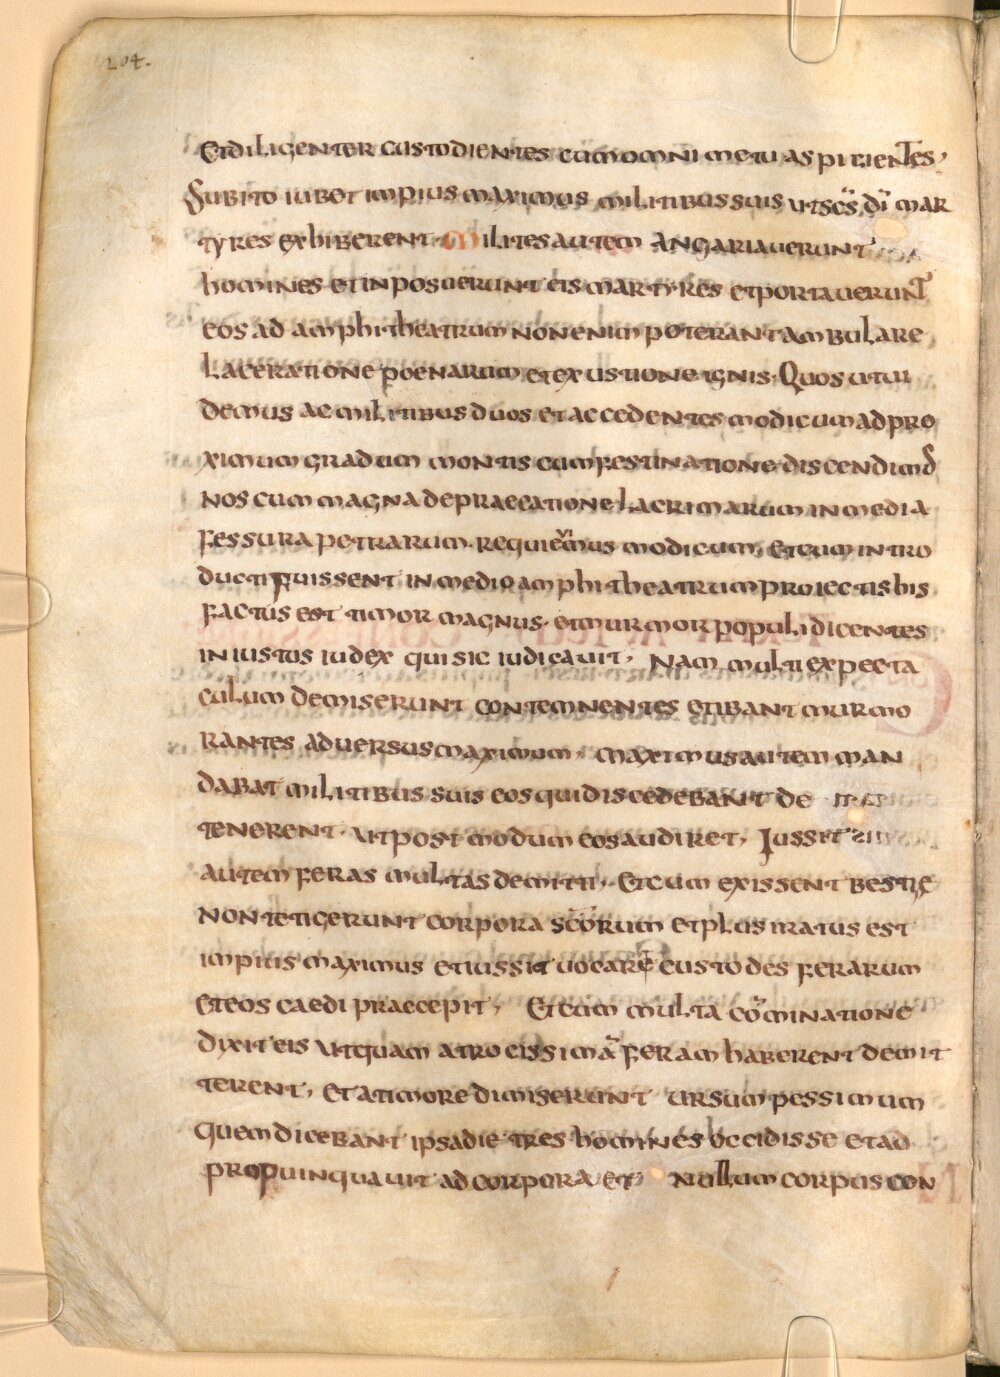 204.
Et diligenter custodientes cum omni metu aspicientes,
Subito iubet impius maximus militibus suis ut scs di mar
tyres exhiberent. Milites autem angariauerunt
homines et inposuerunt eis martyres et portauerunt
eos ad amphitheatrum non enim poterant ambulare
laceratione poenarum et exustione ignis. Quos ut ui
demus ac militibus duos et accedentes modicum ad pro
ximum gradum montis cum festinatione discendimus
nos cum magna depraecatione lacrimarum in media
fessura petrarum. requieuimus modicum, et cum intro
ducti fuissent in medio amphitheatrum proiectis his
factus est timor magnus. et murmor populi dicentes
iniustus iudex qui sic iudicauit. Nam multi expecta
culum demiserunt contemnentes et ibant murmo
rantes aduersus maximum. maximus autem man
dabat militibus suis eos qui discedebant de
tenerent. ut postmodum eos audiret, Iussit
autem feras multas demitti, Et cum exissent bestię
non tetigerunt corpora scorum et plus iratus est
impius maximus et iussit uocare custodes ferarum
et eos caedi praecepit, Et cum multa cominatione
dixit eis ut quam atrocissimā feram haberent demit
terent, Et a timore dimiserunt ursum pessimum
quem dicebant ipsa die tres homines occidisse et ad
propinquauit ad corpora et nullum corpus con